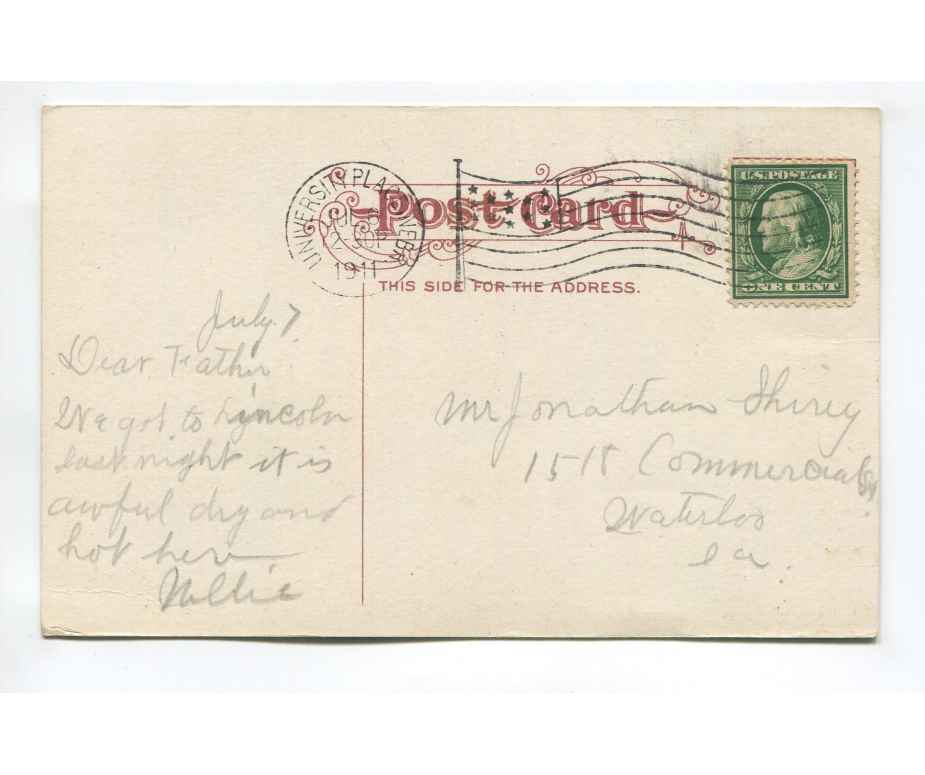 UNIVERSITY PLACE NEBR.
JUL
1911
Post Card
THIS SIDE FOR THE ADDRESS.
U.S. POSTAGE
ONE CENT
July 7
Dear Father
We got to Lincoln
last night it is
awful dry and
hot here
Nellie
Mr Jonathan Shirey
1518 Commercial St
Waterloo
Ia.